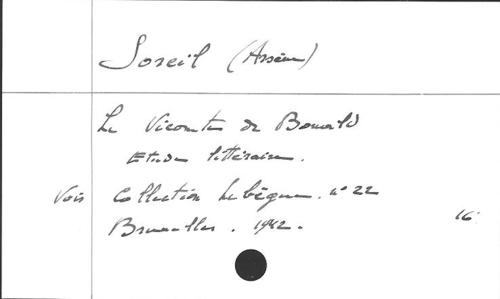 Soreil (Arsène)
Le Vicomte de Bonald
Etude littéraire.
Voir Collection Lebègue. n° 22
Bruxelles. 1942.
16°